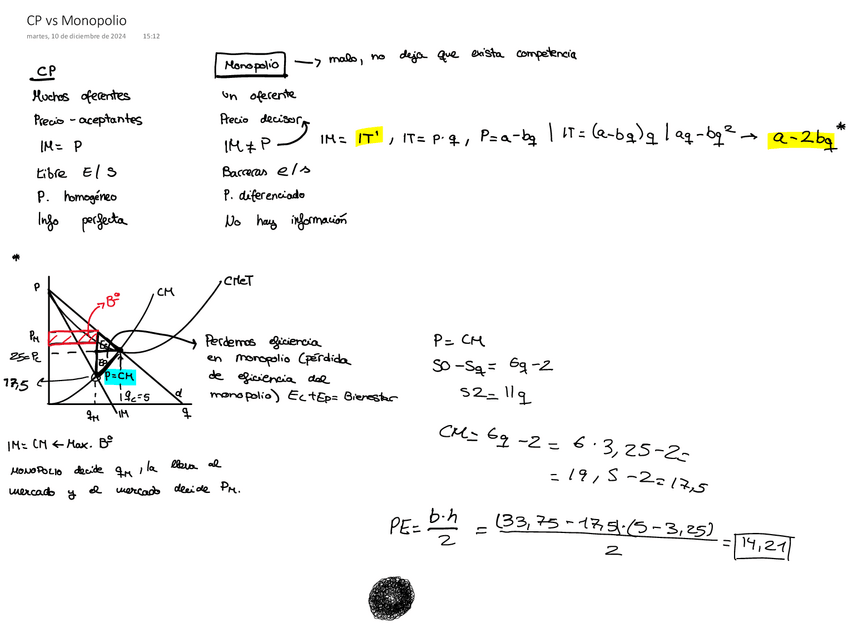 CP vs Monopolio
martes, 10 de diciembre de 2024 15:12
CP
Muchos oferentes
Precio-aceptantes
IM= P
Libre E/S
P. homogéneo
Info perfecta
Monopolio → malo, no deja que exista competencia
Un oferente
Precio decisor
IM≠P
Barreras e/s
P. diferenciado
No hay información
IM= IT', IT= P·q, P=a-bq | IT=(a-bq)q | aq-bq² → a-2bq*
*
P
B⁰
CM
CMeT
PM
25=Pc
17,5
Ec
Ep
P=CM
qM
IM
qc=5
d
q
Perdemos eficiencia
en monopolio (pérdida
de eficiencia del
monopolio) Ec+Ep= Bienestar
IM= CM ← Max. B⁰
MONOPOLIO decide qM, la lleva al
mercado y el mercado decide PM.
P= CM
50-5q= 6q-2
52=11q
CM= 6q-2= 6·3,25-2=
= 19,5-2=17,5
PE= b·h/2 = (33,75-17,5)·(5-3,25)/2 = 14,21